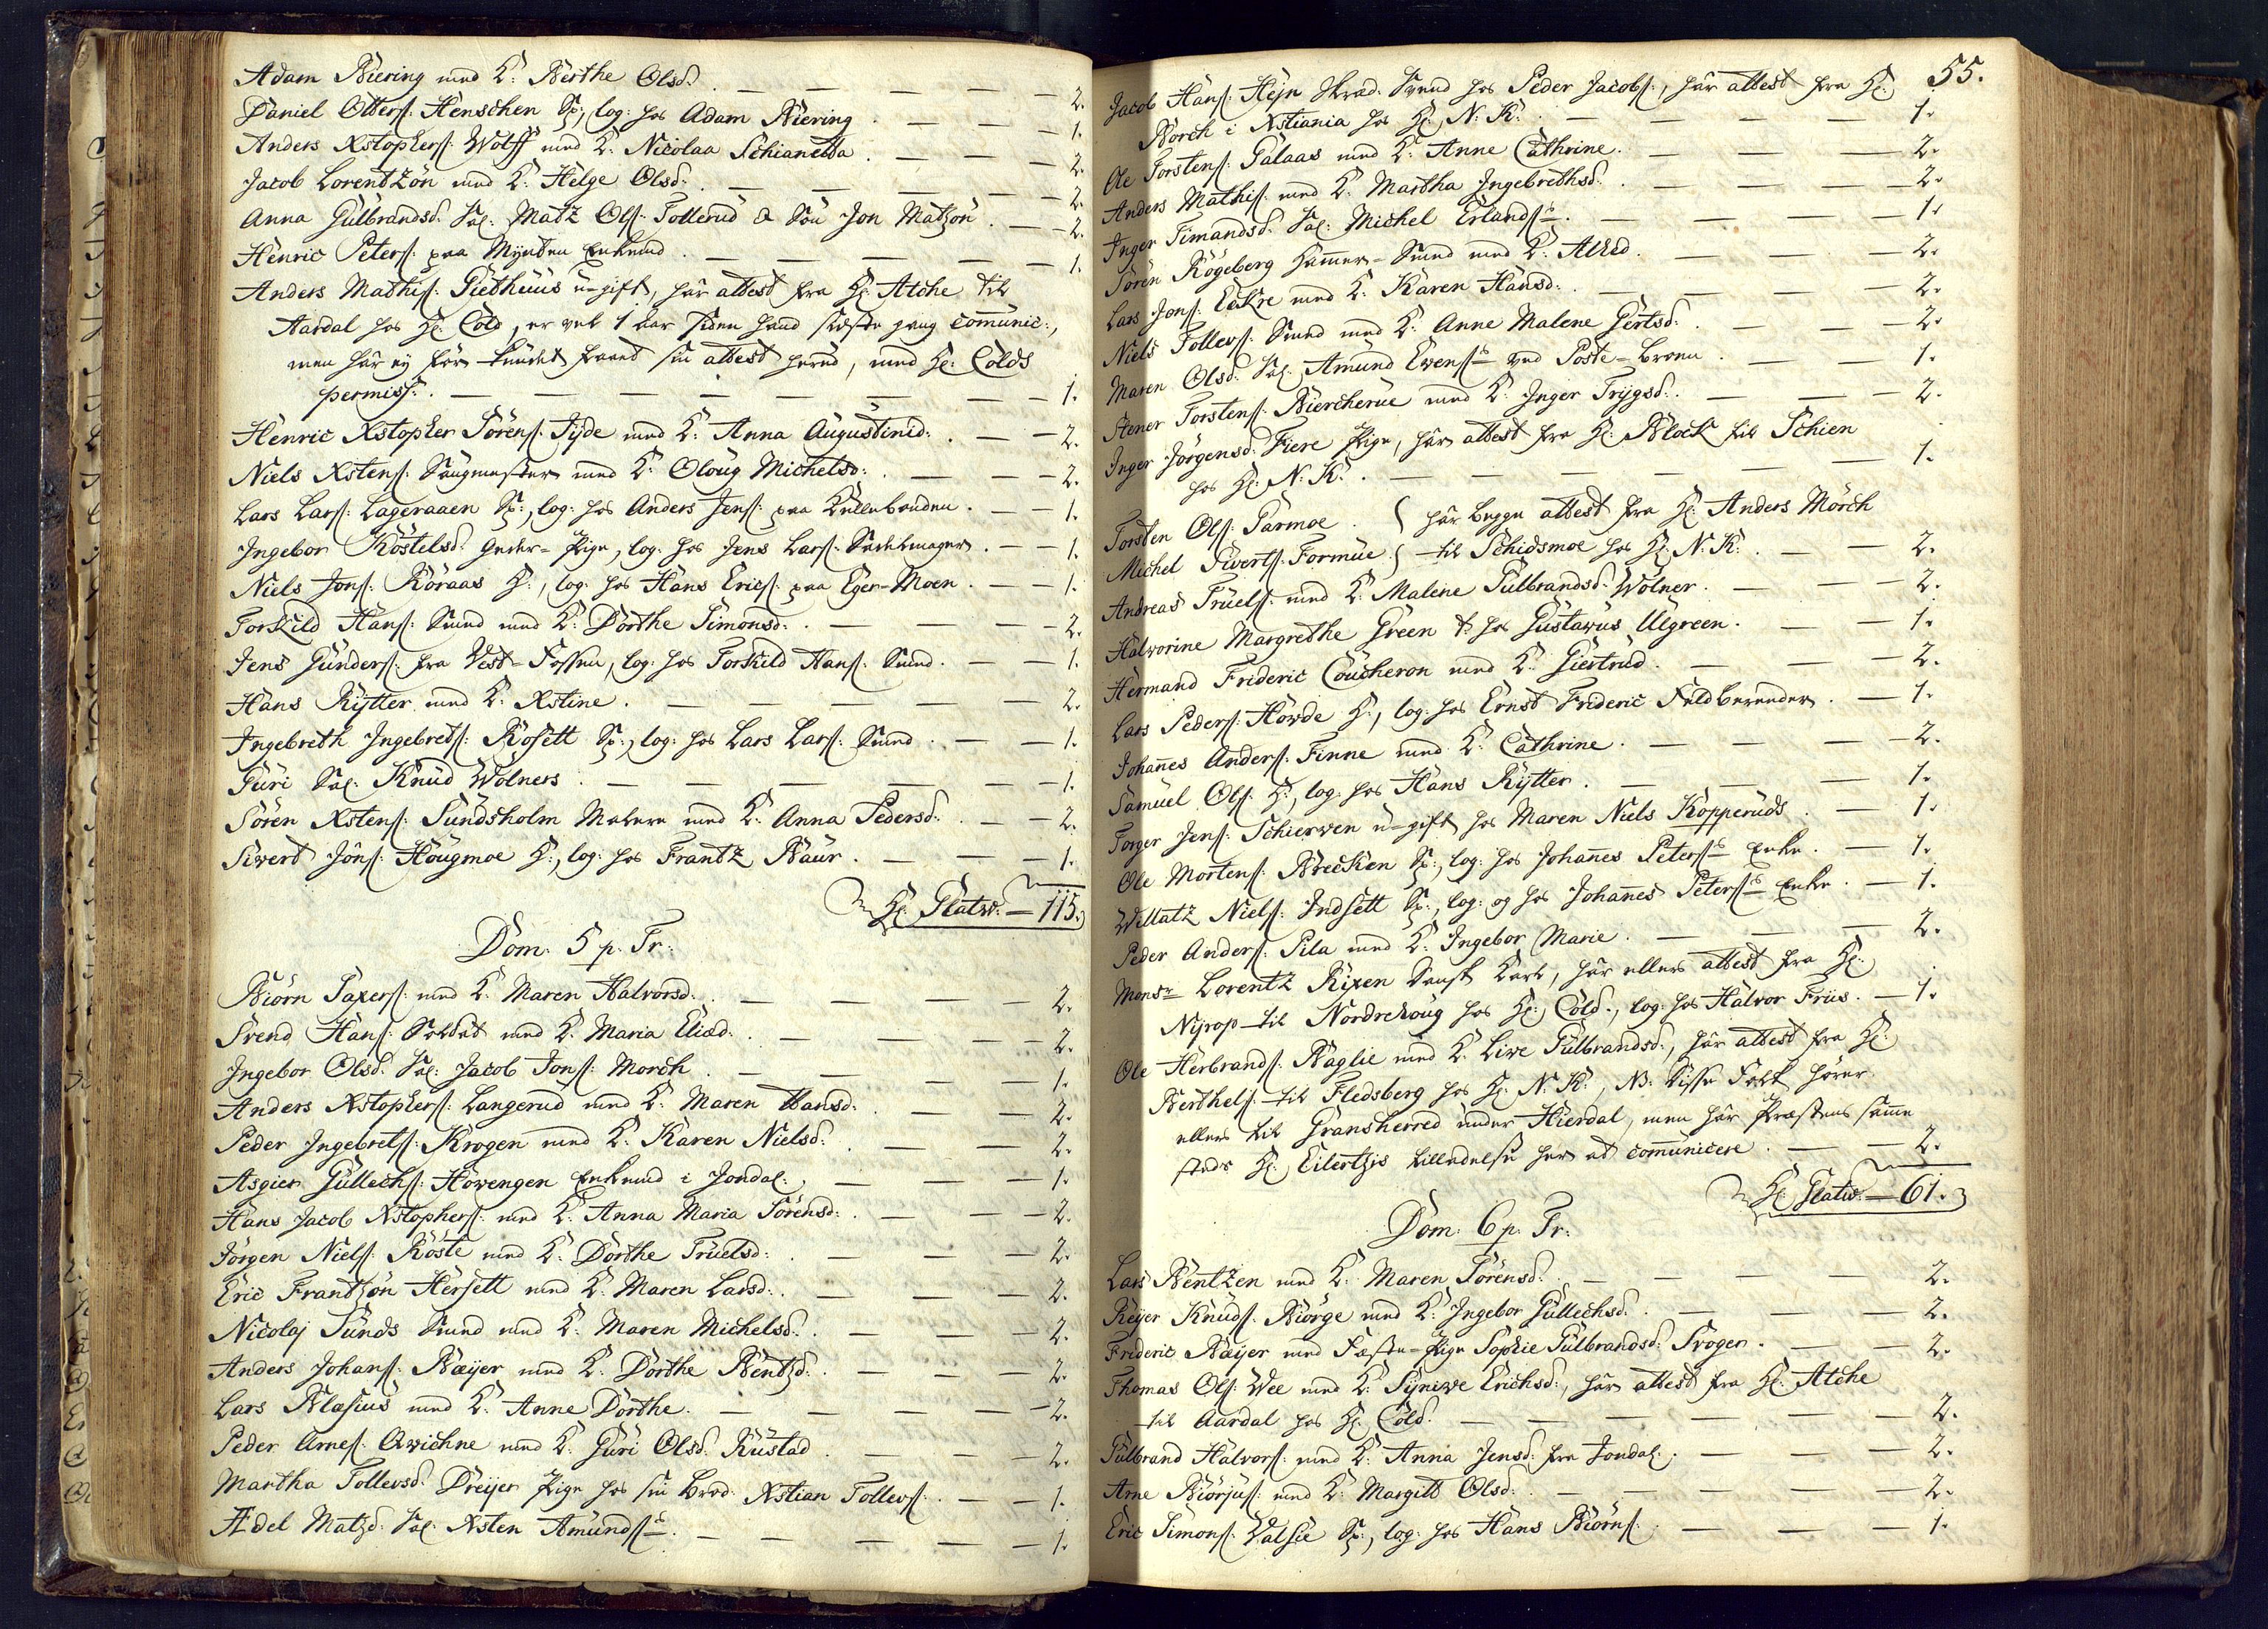 Adam Biering med K: Berthe Olsd: — — — — — 2.
Daniel Otters: Henschen Sp:, log: hos Adam Biering. — — — 1.
Anders Xstophers: Wolff med K: Nicolaa Schianetta. — — — 2.
Jacob Lorentzön med K: Helge Olsd: — — — — 2.
Anna Gulbrandsd: Sal: Matz Ols: Tollerud & Sön Jon Matzön. — — 2.
Henric Peters: paa Mynten Enkemd. — — — — — 1.
Anders Mathis: Giethuus u-gift, har attest fra Hr: Atche til
Aardal hos Hr: Cold, er vel 1 aar siden hand sidste gang com̄unic:,
men har ej för kundet faaet sin attest herud, med Hr: Colds
permiss:. — — — — — — — 1.
Henric Xstopher Sörens: Fyde med K: Anna Augustinid:. — — 2.
Niels Xstens: Saugmester med K: Oloug Michelsd: — — — 2.
Lars Lars: Lageraaen Sp:, log: hos Anders Jens: paa Kullebonden. — — 1.
Ingebor Köstelsd: Geder-Pige, log: hos Jens Lars: Sadelmager. — — 1.
Niels Jons: Röraas H:, log: hos Hans Erics: paa Eger-Moen. — — 1.
Torkild Hans: Smed med K: Dorthe Simonsd:. — — — 2.
Jens Gunders: fra Vest-Fossen, log: hos Torkild Hans: Smed. — — 1.
Hans Rytter med K: Xstine. — — — — — 2.
Ingebreth Ingebrets: Rosett Sp:, log: hos Lars Lars: Smed. — — 1.
Guri Sal: Knud Wolners. — — — — — 1.
Sören Xstens: Sundsholm Malere med K: Anna Pedersd:. — — 2.
Siwert Jöns: Hougmoe H:, log: hos Frantz Baur. — — — 1.
Hr: Platw: — 115.
Dom: 5 p. Tr:
Biörn Saxers: med K: Maren Halvorsd:. — — — — 2.
Svend Hans: Soldat med K: Maria Eliæd:. — — — — 2.
Ingebor Olsd: Sal: Jacob Jons: Morch. — — — — 1.
Anders Xstophers: Langerud med K: Maren Hansd:. — — — 2.
Peder Ingebrets: Krogen med K: Karen Nielsd:. — — — 2.
Asgier Gullechs: Howengen Enkemd i Jondal:. — — — 1.
Hans Jacob Xstophers: med K: Anna Maria Sörensd:. — — — 2.
Jörgen Niels: Röste med K: Dorthe Truelsd:. — — — 2.
Eric Frantzön Hersett med K: Maren Larsd:. — — — 2.
Nicolaj Sunds Smed med K: Maren Michelsd:. — — — 2.
Anders Johans: Bæyer med K: Dorthe Bentzd:. — — — 2.
Lars Blasius med K: Anne Dorthe. — — — — 2.
Peder Arnes: Qwichne med K: Guri Olsd: Rustad. — — — 2.
Martha Tollevsd: Dreyer Pige hos sin Brod: Xstian Tollevs:. — — 1.
Ædel Matzd: Sal: Xsten Amunds:s. — — — — — 1.
55.
Jacob Hans: Hejn Skræd: Svend hos Peder Jacobs:, har attest fra Hr:
Borch i Xstiania hos Hr: N: K:. — — — — — 1.
Ole Torstens: Galaas med K: Anne Cathrine. — — — 2.
Anders Mathis: med K: Martha Ingebrethsd:. — — — 2.
Inger Simandsd: Sal: Michel Erlands:s. — — — — 1.
Sören Rögeberg Ham̄er-Smed med K: Alhed. — — — 2.
Lars Jons: Eckre med K: Karen Hansd:. — — — — 2.
Niels Tollevs: Smed med K: Anne Malene Gertsd:. — — — 2.
Maren Olsd: Sal: Amund Ewens:s ved Poste-Broen. — — 1.
Stener Torstens: Biercherue med K: Inger Trygsd:. — — — 2.
Inger Jörgensd: Fiere Pige, har attest fra Hr: Block til Schien
hos Hr: N: K:. — — — — — — 1.
Torsten Ols: Garmoe. } har begge attest fra Hr: Anders Mörch
Michel Siverts: Formue. } til Schidsmoe hos Hr: N: K:. — — 2.
Andreas Truels: med K: Malene Gulbrandsd: Wolner. — — — 2.
Halvorine Margrethe Green t: hos Gustavus Ulgreen. — — 1.
Hermand Frideric Coucheron med K: Giertrud. — — — 2.
Lars Peders: Howde H:, log: hos Ernst Frideric Feldbereder. — 1.
Johan̄es Anders: Finne med K: Cathrine. — — — — 2.
Samuel Ols: H:, log: hos Hans Rytter. — — — 1.
Torger Jens: Schierwen u-gift hos Maren Niels Kopperuds. — 1.
Ole Mortens: Brecken Sp:, log: hos Johan̄es Peters:s Enke. — 1.
Willatz Niels: Indsett Sp:, log: og hos Johan̄es Peters:s Enke. — 1.
Peder Anders: Pila med K: Ingebor Marie. — — — 2.
Monsr Lorentz Rixen Dansk Karl, har ellers attest fra Hr:
Nyrop til Nordrehoug hos Hr: Cold, log: hos Halvor Friis. — 1.
Ole Herbrands: Baglie med K: Liwe Gulbrandsd:, har attest fra Hr:
Berthels: til Flesberg hos Hr: N: K:, NB: Disse Folk hörer
ellers til Gransherred under Hierdal, men har Præstens sam̄e
steds Hr: Eilertzis tilladelse her at com̄unicere. — — 2.
Hr: Platw: — 61.
Dom: 6 p. Tr:
Lars Bentzen med K: Maren Sörensd:. — — — 2.
Reyer Knuds: Biörge med K: Ingebor Gullechsd:. — — 2.
Frideric Bæyer med Fæste-Pige Sophie Gulbrandsd: Svoger. — — 2.
Thomas Ols: Wee med K: Syniwe Erichsd:, har attest fra Hr: Atche
til Aardal hos Hr: Cold. — — — — — 2.
Gulbrand Halvors: med K: Anna Jensd: fra Jondal:. — — 2.
Arne Biörjus: med K: Margitt Olsd:. — — — — 2.
Eric Simons: Dalsie Sp:, log: hos Hans Biörns:. — — — 1.